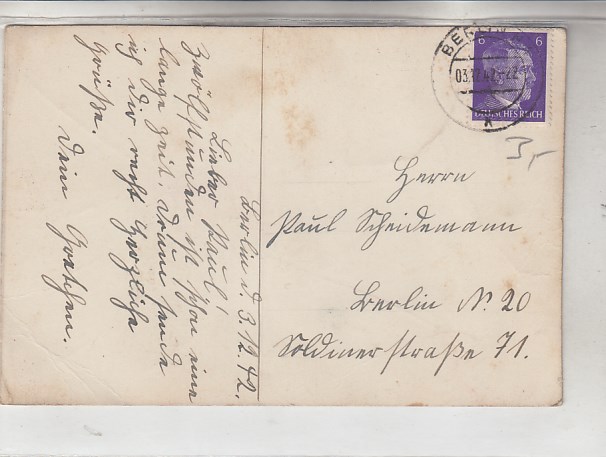 Berlin d. 3.12.42.
Lieber Paul!
Zwölf Stunden ist schon eine
lange Zeit. Drum sende
ich Dir recht herzliche
Grüße.
Dein Gretchen.
BERLIN
03.12.42.-22
6 6
DEUTSCHES REICH
3,-
Herrn
Paul Scheidemann
Berlin N. 20
Soldinerstraße 71.